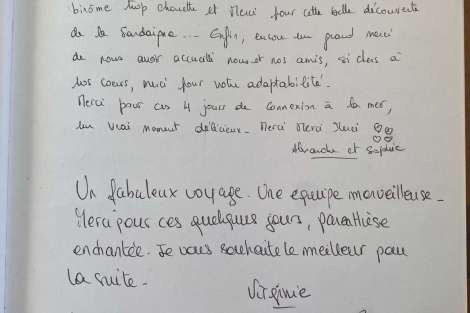 binôme trop chouette et Merci pour cette belle découverte
de la Sardaigne... Enfin, encore un grand merci
de nous avoir accueilli nous et nos amis, si chers à
nos coeurs, merci pour votre adaptabilité.
Merci pour ces 4 jours de connexion à la mer,
un vrai moment délicieux - Merci Merci Merci
et Sophie
Un fabuleux voyage. Une equipe merveilleuse -
Merci pour ces quelques jours, parenthèse
enchantée. Je vous souhaite le meilleur pour
la suite -
Virginie